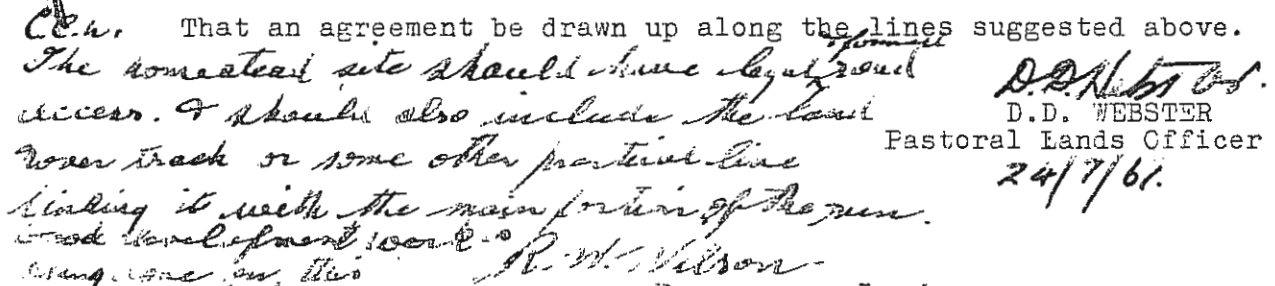 That an agreement be drawn up along the lines suggested above.
The homestead site should have legal & formed road
access. & should also include the Land
Rover track or some other practical line
linking it with the main portion of the run.
Good development work
being done on this
R. W. Wilson
D.D. Webster.
D.D. WEBSTER
Pastoral Lands Officer
24/7/61.